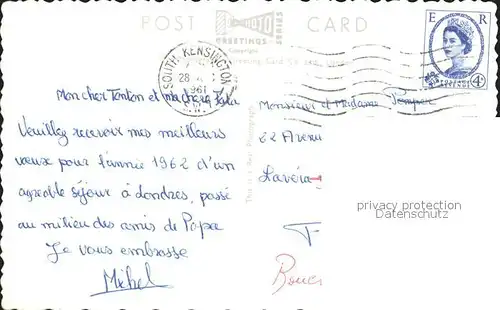 POST CARD
GREETINGS
SERIES
E R
SOUTH KENSINGTON
28
1961
4D
Mon cher Tonton et ma chère Tata
Veuillez recevoir mes meilleurs
vœux pour l'année 1962 d'un
agréable séjour à Londres, passé
au milieu des amis de Papa
Je vous embrasse
Michel
Monsieur et Madame
22 Avenu
Lavéra
F
Bouc
This is a Real Photograph
privacy protection
Datenschutz